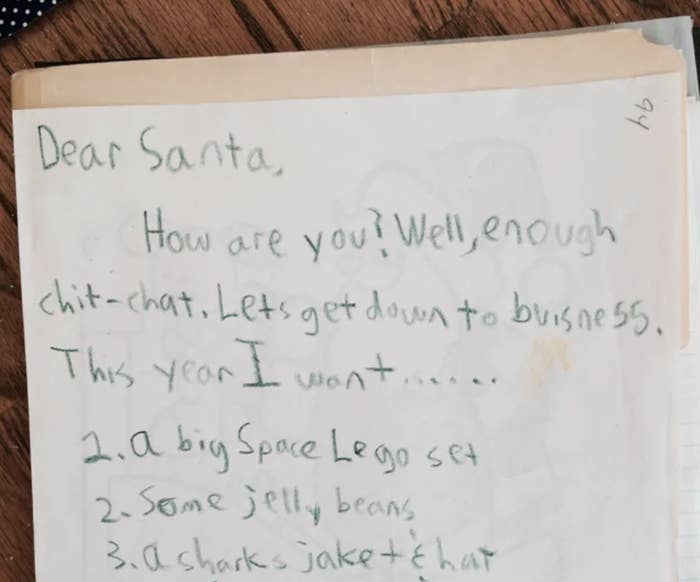 94
Dear Santa,
How are you? Well, enough
chit-chat. Lets get down to buisness.
This year I want......
1. a big Space Lego set
2. Some jelly beans
3. a sharks jaket & hat